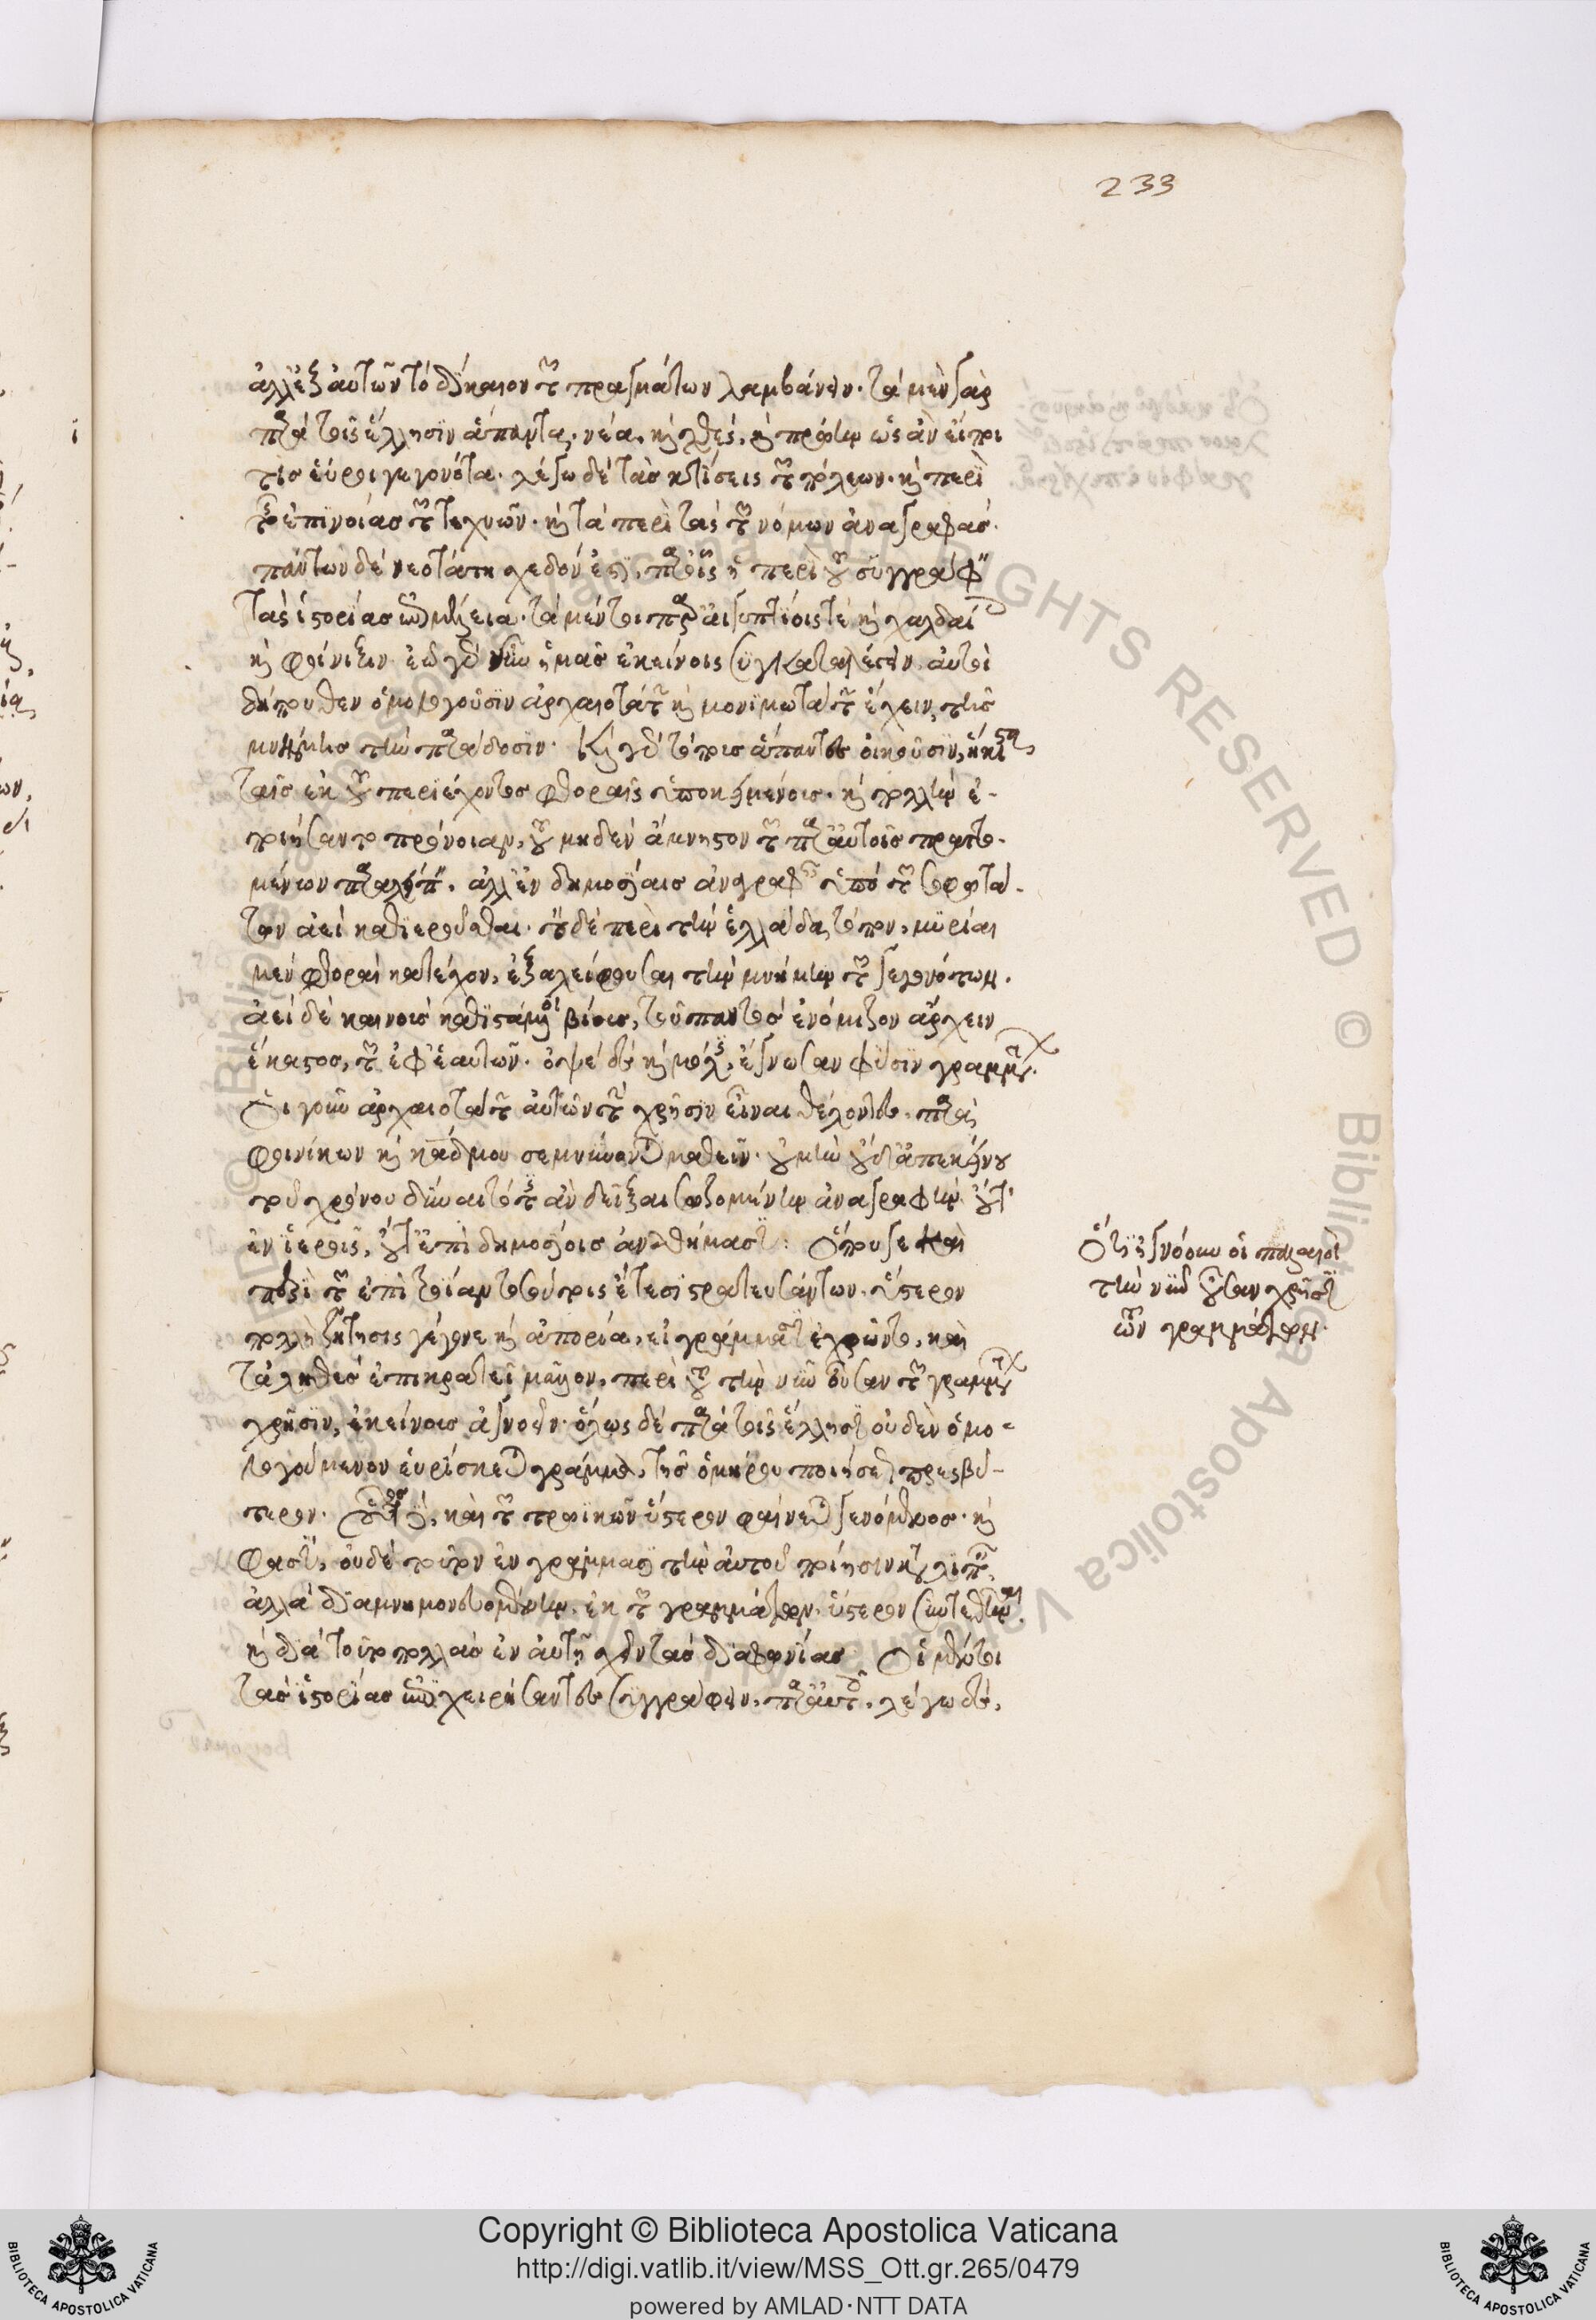 ἀλλ' ἐξ αὐτῶν τὸ δίκαιον τῶν πραγμάτων λαμβάνειν. τὰ μὲν γὰρ
παρὰ τοῖς ἕλλησιν ἅπαντα, νέα, καὶ χθὲς, καὶ πρώην ὡς ἂν εἴποι
τις εὕροι γεγονότα. λέγω δὲ τὰς κτίσεις τῶν πόλεων. καὶ περὶ
τὰς ἐπινοίας τῶν τεχνῶν. καὶ τὰ περὶ τὰς τῶν νόμων ἀναγραφάς.
πάντων δὲ νεοτάτη σχεδόν ἐστι, παρ' οἷς ἡ περὶ τοῦ συγγράφειν
τὰς ἱστορίας ἐπιμέλεια. τὰ μέντοι παρ' αἰγυπτίοις τὲ καὶ χαλδαίοις
καὶ φοίνιξιν. ἐῶ γὰρ νῦν ἡμᾶς ἐκείνοις συγκαταλέγειν. αὐτοὶ
δήπουθεν ὁμολογοῦσιν ἀρχαιοτάτην καὶ μονιμωτάτην ἔχειν, τῆς
μνήμης τὴν παράδοσιν. καὶ γὰρ τόποις ἅπαντες οἰκοῦσιν, ἥκιστα,
ταῖς ἐκ τοῦ περιέχοντος φθοραῖς ὑποκειμένοις. καὶ πολλὴν ἐ-
ποιήσαντο πρόνοιαν, τοῦ μηδὲν ἄμνηστον τῶν παρ' αὐτοῖς πραττο-
μένων παραλιπεῖν. ἀλλ' ἐν δημοσίαις ἀναγραφαῖς ὑπὸ τῶν σοφωτά-
των ἀεὶ καθιεροῦσθαι. τὸν δὲ περὶ τὴν ἑλλάδα, τόπον, μυρίαι
μὲν φθοραὶ κατέσχον, ἐξαλείφουσαι τὴν μνήμην τῶν γεγονότων.
ἀεὶ δὲ καινοὺς καθιστάμενοι βίους, τοῦ παντὸς ἐνόμιζον ἄρχειν
ἕκαστος, τῶν ἐφ' ἑαυτῶν. ὀψὲ δὲ καὶ μόλις, ἔγνωσαν φύσιν γραμμάτων.
Οἱ γοῦν ἀρχαιοτάτην αὐτῶν τὴν χρῆσιν εἶναι θέλοντες. παρὰ
φοινίκων καὶ κάδμου σεμνύνονται μαθεῖν. οὐ μὴν οὐδ' ἀπ' ἐκείνου
τοῦ χρόνου δύναιτό τις ἂν δεῖξαι σωζομένην ἀναγραφὴν οὔτ'
ἐν ἱεροῖς, οὔτ' ἐπὶ δημοσίοις ἀναθήμασι: Ὅπου γε καὶ
περὶ τῶν ἐπὶ τροίαν τοσούτοις ἔτεσι στρατευσάντων. ὕστερον
πολλὴ ζήτησις γέγονε καὶ ἀπορία, εἰ γράμμασιν ἐχρῶντο, καὶ
τἀληθὲς ἐπικρατεῖ μᾶλλον, περὶ τοῦ τὴν νῦν οὖσαν τῶν γραμμάτων
χρῆσιν, ἐκείνοις ἀγνοεῖν. ὅλως δὲ παρὰ τοῖς ἕλλησι οὐδὲν ὁμο-
λογούμενον εὑρίσκεται γράμμα, τῆς ὁμήρου ποιήσεως πρεσβύ-
τερον. οὗτος δὲ, καὶ τῶν τρωικῶν ὕστερον φαίνεται γενόμενος. καὶ
φασὶν, οὐδὲ τοῦτον ἐν γράμμασι τὴν αὐτοῦ ποίησιν καταλιπεῖν,
ἀλλὰ διαμνημονευομένην. ἐκ τῶν γραμμάτων. ὕστερον συντεθῆναι.
καὶ διὰ τοῦτο πολλὰς ἐν αὐτῇ σχεῖν τὰς διαφωνίας. Οἱ μέντοι
τὰς ἱστορίας ἐπιχειρήσαντες συγγράφειν. παρ' αὐτοῖς. λέγω δὲ,
Ὅτι ἠγνόουν οἱ παλαιοὶ
τὴν νῦν οὖσαν χρῆσιν
τῶν γραμμάτων.
233
Copyright © Biblioteca Apostolica Vaticana
http://digi.vatlib.it/view/MSS_Ott.gr.265/0479
powered by AMLAD·NTT DATA